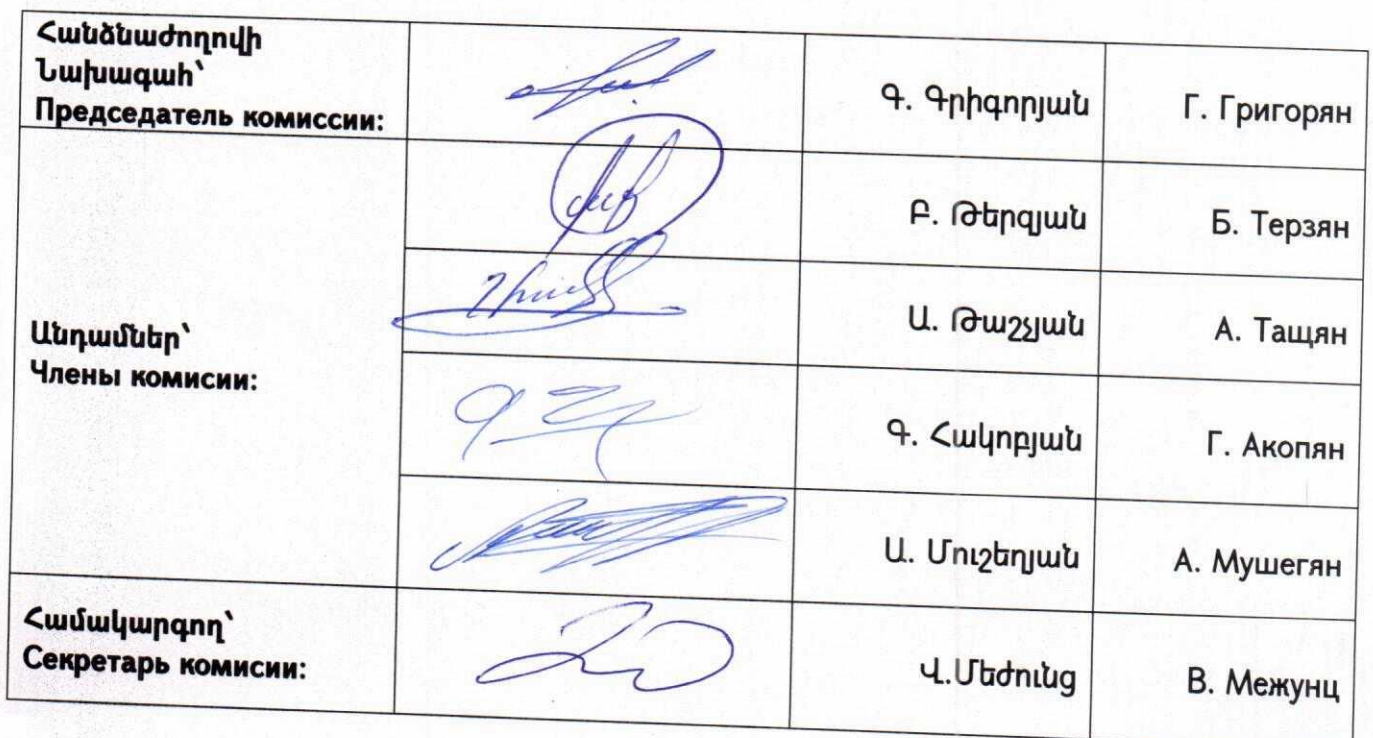 Հանձնաժողովի
Նախագահ՝
Председатель комиссии:
Գ. Գրիգորյան
Г. Григорян
Անդամներ՝
Члены комисии:
Բ. Թերզյան
Б. Терзян
Ա. Թաշչյան
А. Тащян
Գ. Հակոբյան
Г. Акопян
Ա. Մուշեղյան
А. Мушегян
Համակարգող՝
Секретарь комисии:
Վ.Մեժունց
В. Межунц